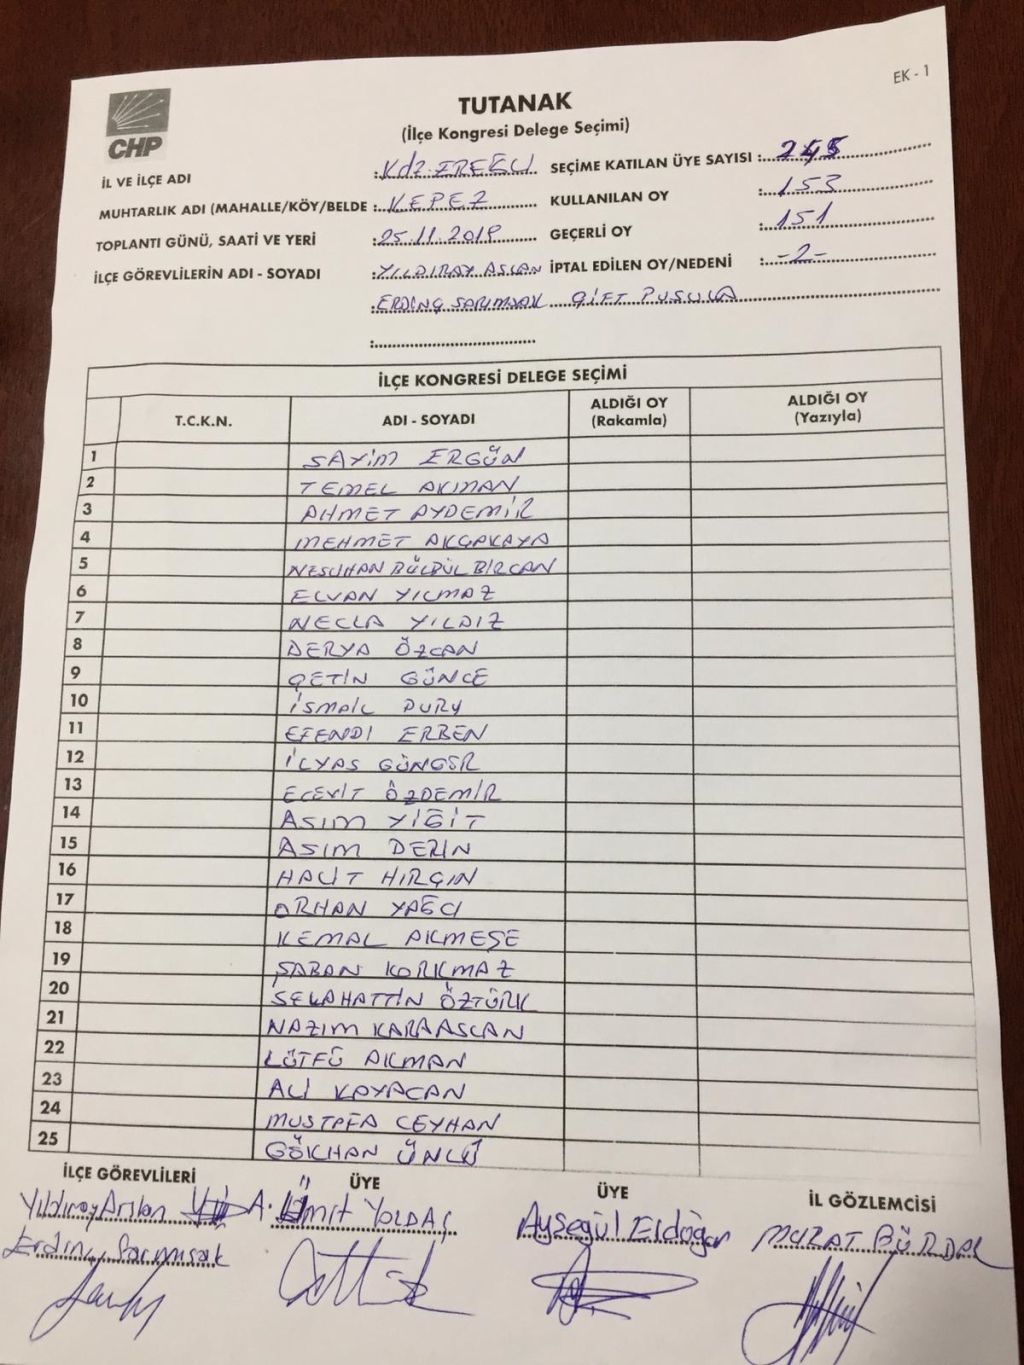 EK - 1
CHP
TUTANAK
(İlçe Kongresi Delege Seçimi)
İL VE İLÇE ADI :Kdz. EREĞLİ SEÇİME KATILAN ÜYE SAYISI : 245
MUHTARLIK ADI (MAHALLE/KÖY/BELDE : KEPEZ KULLANILAN OY : 153
TOPLANTI GÜNÜ, SAATİ VE YERİ :25.11.2019 GEÇERLİ OY : 151
İLÇE GÖREVLİLERİN ADI - SOYADI :YILDIRAY ASLAN İPTAL EDİLEN OY/NEDENİ : -2-
:ERDİNÇ SARIMSAK ÇİFT PUSULA
:
İLÇE KONGRESİ DELEGE SEÇİMİ
T.C.K.N. ADI - SOYADI ALDIĞI OY (Rakamla) ALDIĞI OY (Yazıyla)
1 SAYİM ERGÜN
2 TEMEL AKMAN
3 AHMET AYDEMİR
4 MEHMET AKÇAKAYA
5 NESLİHAN BÜLBÜL BİRCAN
6 ELVAN YILMAZ
7 NECLA YILDIZ
8 DERYA ÖZCAN
9 ÇETİN GÜNCE
10 İSMAİL DURU
11 EFENDİ ERBEN
12 İLYAS GÜNGÖR
13 ECEVİT ÖZDEMİR
14 ASIM YİĞİT
15 ASIM DERİN
16 HALİT HIRÇIN
17 ORHAN YAĞCI
18 KEMAL AKMEŞE
19 ŞABAN KORKMAZ
20 SELAHATTİN ÖZTÜRK
21 NAZIM KARAASLAN
22 LÜTFÜ AKMAN
23 ALİ KAYACAN
24 MUSTAFA CEYHAN
25 GÖKHAN ÜNLÜ
İLÇE GÖREVLİLERİ ÜYE ÜYE İL GÖZLEMCİSİ
Yıldıray Arslan A. Ümit YOLDAŞ Ayşegül Erdoğan MURAT BÜRDAL
Erdinç Sarımsak